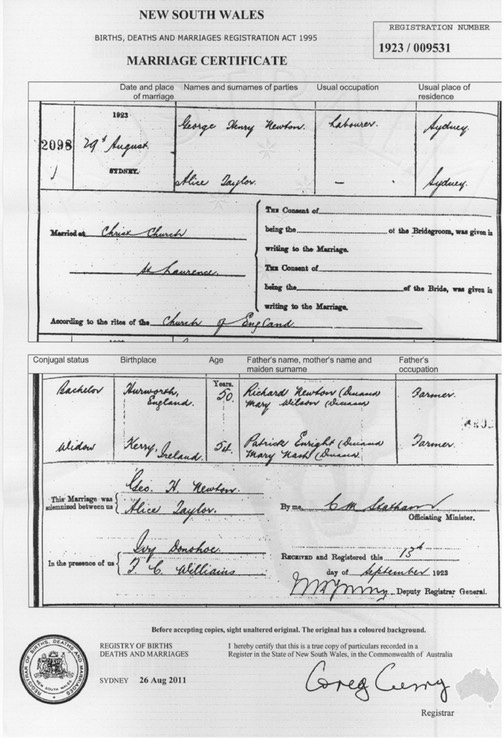 NEW SOUTH WALES
BIRTHS, DEATHS AND MARRIAGES REGISTRATION ACT 1995
MARRIAGE CERTIFICATE
REGISTRATION NUMBER
1923 / 009531
Date and place of marriage
Names and surnames of parties
Usual occupation
Usual place of residence
1923
2098
29th August
SYDNEY.
George Henry Newton
Labourer
Sydney
Alice Taylor
-
Sydney
Married at Christ Church
St Laurence
According to the rites of the Church of England
THE Consent of
being the of the Bridegroom, was given in
writing to the Marriage.
THE Consent of
being the of the Bride, was given in
writing to the Marriage.
Conjugal status
Birthplace
Age
Father's name, mother's name and maiden surname
Father's occupation
Years.
Bachelor
Hurworth, England
50
Richard Newton (Deceased
Mary Wilson (Deceased
Farmer
Widow
Kerry, Ireland
Patrick Enright (Deceased
Mary Nash (Deceased
Farmer
This Marriage was solemnized between us
Geo. H. Newton
Alice Taylor.
By me, C M Statham
Officiating Minister.
In the presence of us
Ivy Donohoe
F. C. Williams
RECEIVED and Registered this 13th
day of September 1923
Deputy Registrar General.
Before accepting copies, sight unaltered original. The original has a coloured background.
REGISTRY OF BIRTHS
DEATHS AND MARRIAGES
SYDNEY 26 Aug 2011
I hereby certify that this is a true copy of particulars recorded in a
Register in the State of New South Wales, in the Commonwealth of Australia
Greg Curry
Registrar
REGISTRY OF BIRTHS, DEATHS AND MARRIAGES